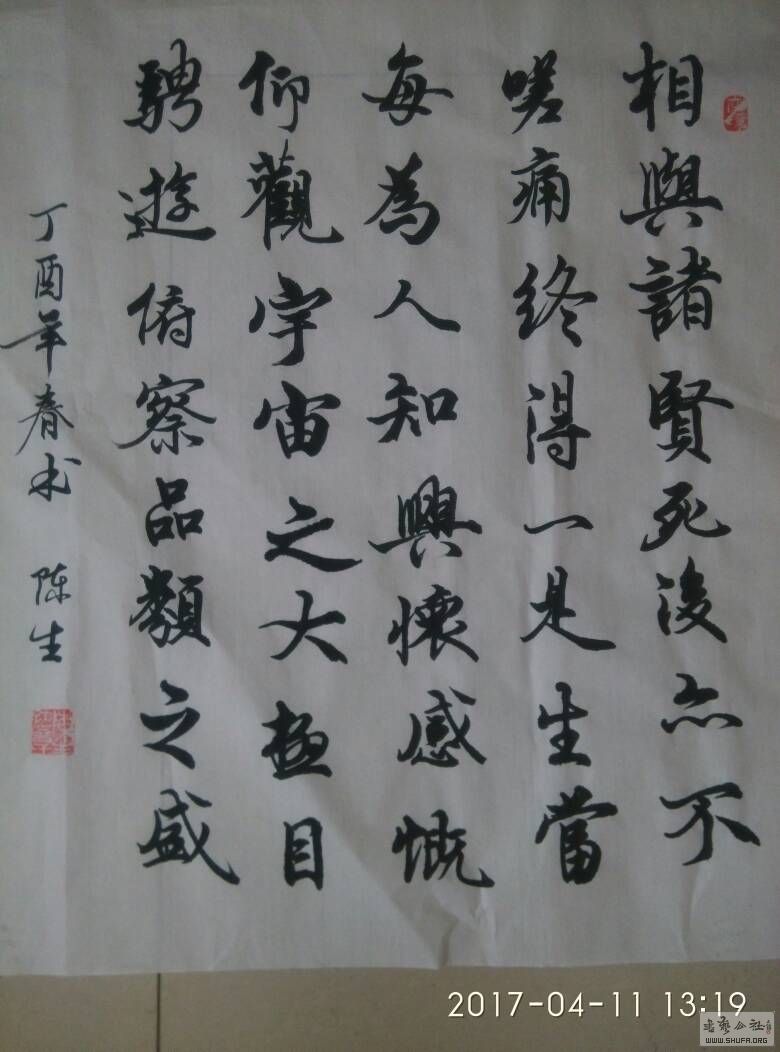 相與諸賢死後亦不
嗟痛終得一是生當
每為人知興懷感慨
仰觀宇宙之大極目
騁遊俯察品類之盛
丁酉年春书 陈生
2017-04-11 13:19
书艺公社
WWW.SHUFA.ORG